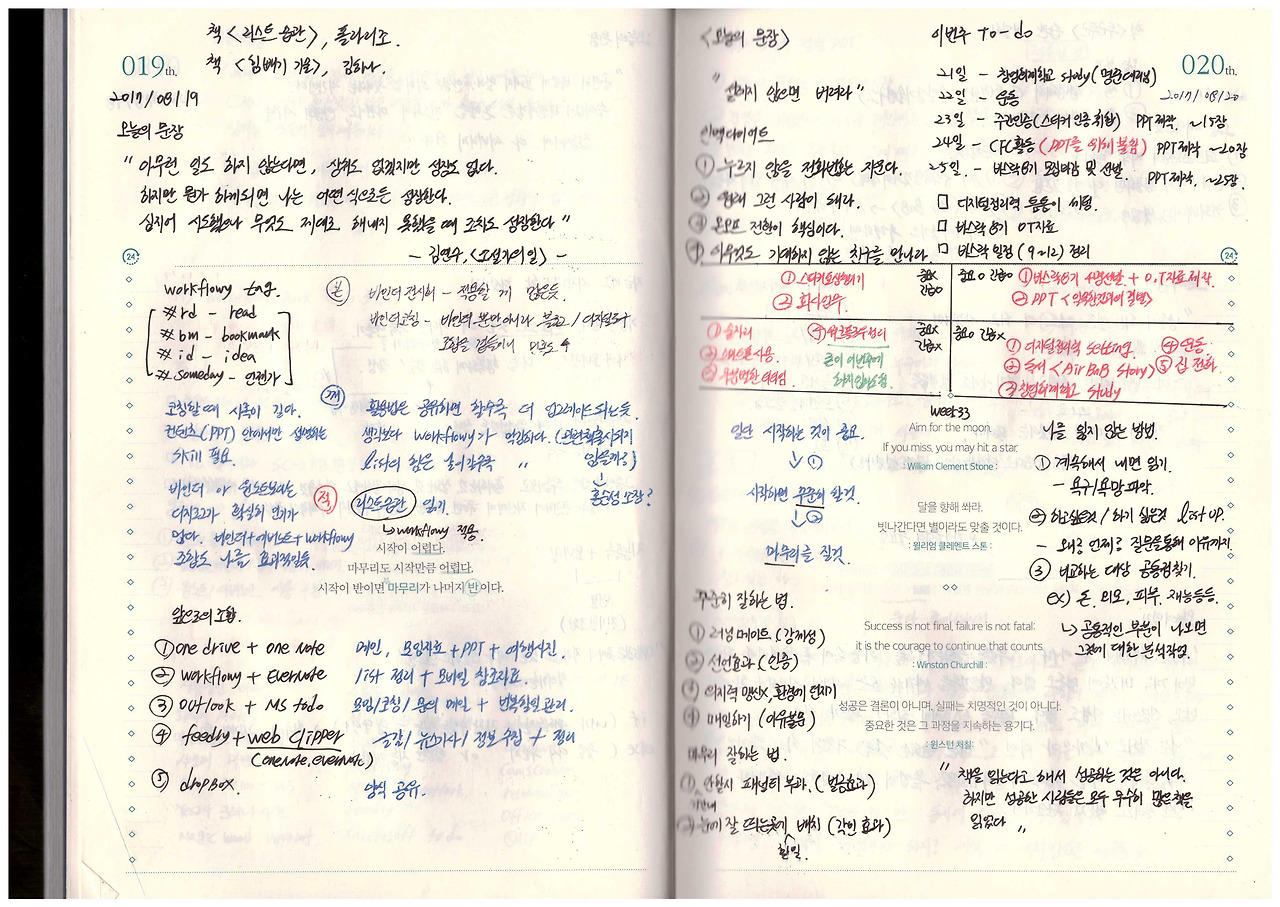 책 <리스트 습관>, 폴라리스.
책 <힘빼기 기술>, 김하나.
019th.
2017/08/19
오늘의 문장
" 아무런 일도 하지 않는다면, 상처도 없겠지만 성장도 없다.
하지만 뭔가 하게되면 나는 어떤 식으로든 성장한다.
심지어 시도했으나 무엇도 제대로 해내지 못했을 때 조차도 성장한다 "
- 김연수, <소설가의 일> -
24
workflowy tag.
# rd - read
# bm - bookmark
# id - idea
# someday - 언젠가
본
바인더 전시회 - 적용할 게 많은듯.
바인더코칭 - 바인더 뿐만 아니라 블로그/디지털도구
조합을 점들에서
깨
코칭할 때 시록이 길다.
컨텐츠(PPT) 안에서만 설명하는
skill 필요.
활용법은 공유하면 할수록 더 업그레이드 되는듯.
생각보다 workflowy가 막강하다.
list의 힘은 늘어갈수록 "
바인더 야 원노트보다는
적
리스트습관 읽기.
↳ workflowy 적용.
없다. 바인더+에버노트+workflowy
조합도 나름 효과적인듯.
시작이 어렵다.
마무리도 시작만큼 어렵다.
시작이 반이면 마무리가 나머지 반이다.
앞으로의 조합.
① one drive + one note 메인, 모임자료 + PPT + 여행사진.
② workflowy + Evernote list 정리 + 모바일 참조자료.
③ outlook + MS todo 모임/코칭/ 메일 + 반복할일 관리.
④ feedly + web clipper 글감/뉴스기사/정보 수집 + 정리
(onenote, evernote)
⑤ dropbox. 양식 공유.
<오늘의 문장>
" 설레지 않으면 버려라 "
인맥다이어트
① 누르지 않을 전화번호는 지운다.
② 원래 그런 사람이 돼라.
③ 온오프 전환이 핵심이다.
④ 아무것도 기대하지 않는 친구를 만나라.
이번주 To-do
020th.
2017/08/20
21일 - 창업하게학교 study
22일 - 운동
23일 - 주간인증(스티커 인증 취합) PPT 제작, ~15장
24일 - CFC활동 (PPT를 위해 불참) PPT제작 ~20장
25일 - 버스락8기 모임마감 및 선발. PPT제작, ~25장.
□ 디지털정리력 틈틈이 세팅.
□ 버스락 8기 OT자료
□ 버스락 일정 (9~12) 정리
24
① 스티커모상하기
② 회사업무.
중요X
긴급O
중요O 긴급O
① 버스락8기 4명선발 + O.T자료 제작
② PPT
① 술자리
중요X
긴급X
큰이 이번주에
하지 않아도됨.
중요O 긴급X
① 디지털정리력 setting.
② 독서 <AirBnB story>
③ 창업하게학교 study
④ 운동
⑤ 집 전화.
week33
Aim for the moon.
If you miss, you may hit a star.
: William Clement Stone :
달을 향해 쏴라.
빗나간다면 별이라도 맞출 것이다.
: 윌리엄 클레멘트 스톤 :
일단 시작하는 것이 중요.
↓ ①
시작하면 꾸준히 할것
↓ ②
마무리를 질것.
나를 잃지 않는 방법.
① 계속해서 내면 읽기.
- 욕구/욕망 파악.
② 하고싶은것/하기 싫은것 list up.
- 왜? 언제? 질문을통해 이유까지.
③ 비교하는 대상 공통점찾기.
ex) 돈, 외모, 피부, 재능등등.
↳ 공통적인 부분이 나오면
그것에 대한 분석작업.
꾸준히 잘하는 법.
① 러닝 메이트 (강제성)
② 선언효과 (인증)
③ 의지력 맹신X, 환경에 던지기
④ 매일하기 (이유불문)
Success is not final, failure is not fatal:
it is the courage to continue that counts.
: Winston Churchill :
성공은 결론이 아니며, 실패는 치명적인 것이 아니다.
중요한 것은 그 과정을 지속하는 용기다.
: 윈스턴 처칠:
마무리 잘하는 법.
① 안할시 패널티 부과. (벌금효과)
기간내
② 눈에 잘 띄는곳에 배치 (각인 효과)
할일.
" 책을 읽는다고 해서 성공하는 것은 아니다.
하지만 성공한 사람들은 모두 무수히 많은책을
읽었다 "